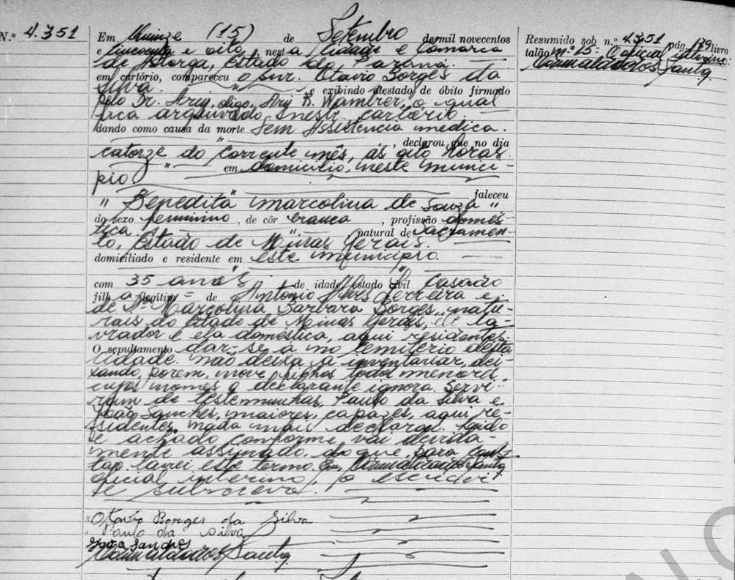 N.º 4.351
Em Quinze (15) de Setembro de mil novecentos
e cincoenta e oito, nesta Cidade e Comarca
de Astorga, Estado do Paraná.
em cartório, compareceu o snr. Otavio Borges da
Silva. e exibindo atestado de óbito firmado
pelo Dr. Ary, digo, Ary B. o qual
fica arquivado, neste cartorio.
dando como causa da morte sem assistencia medica.
declarou que no dia
catorze do corrente mês, ás oito horas
em domicilio, neste munici-
pio
"Benedita Marcolina de Souza" faleceu
do sexo feminino, de côr branca, profissão domés-
tica. natural de Sacramen-
to, Estado de Minas Gerais.
domiciliado e residente em este municipio.
com 35 anos de idade, estado civil casada
filha legítima de Antonio Alves Ferreira e
de Dª Marcolina Barbara Borges, natu-
rais do Estado de Minas Gerais, ele la-
vrador e ela doméstica, aqui residentes.
O sepultamento dar-se-á no cemitério desta
cidade. não deixa a inventariar, dei-
xando, porem, nove filhos todos menores
cujos nomes o declarante ignora. Servi-
ram de testemunhas, Paulo da Silva e
João Sanches, maiores, capazes, aqui re-
sidentes. nada mais declarou. Lido
e achado conforme vai devida-
mente assinado. do que, para cons-
tar, lavrei este termo. Eu,
oficial interino, o escrevi
e subscrevi.
Otavio Borges da Silva
Paulo da Silva
João Sanches
Resumido sob n.º 4351 pág. 179 livro
talão nº 15- O oficial interino: